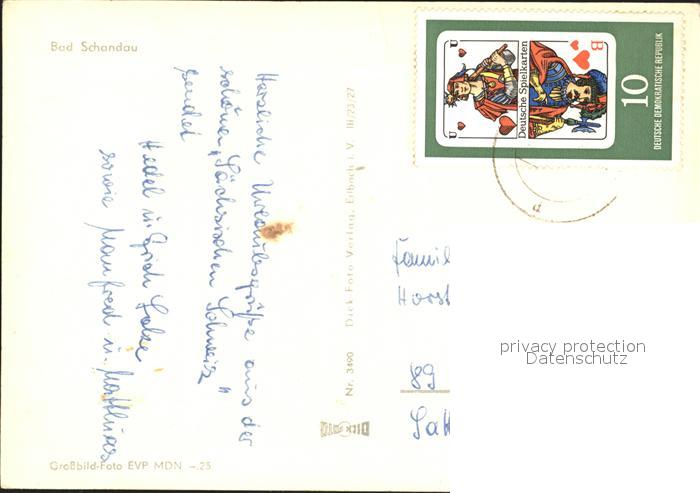 Bad Schandau
Herzliche Urlaubsgrüße aus der
schönen „Sächsischen Schweiz"
sendet
Hedel u. Erich
sowie Manfred u. Matthias
Großbild-Foto EVP MDN –.25
Nr. 3490 Dick-Foto-Verlag, Erlbach i. V. III/23/27
DICK FOTO
U
U
B
Deutsche Spielkarten
10
DEUTSCHE DEMOKRATISCHE REPUBLIK
Famil
Horst
89
privacy protection
Datenschutz